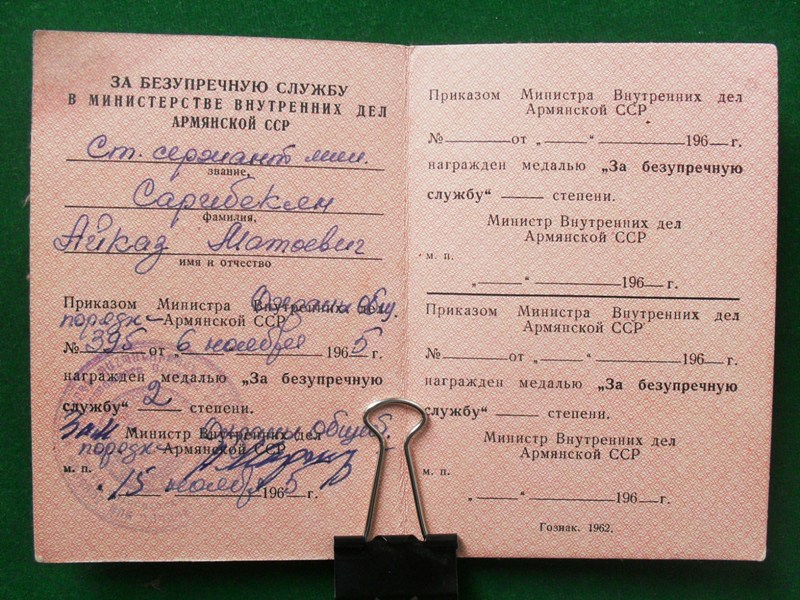 ЗА БЕЗУПРЕЧНУЮ СЛУЖБУ
В МИНИСТЕРСТВЕ ВНУТРЕННИХ ДЕЛ
АРМЯНСКОЙ ССР
Ст. сержант мил.
звание,
Саргибекян
фамилия,
Айказ Матоевич
имя и отчество
Приказом Министра Внутренних дел Охраны Общ.
порядк Армянской ССР
№ 395 от „ 6 ноября 1965 г.
награжден медалью „За безупречную
службу“ 2 степени.
Зам Министр Внутренних дел Охраны Общ.
порядк Армянской ССР
м. п.
„15 ноября 1965 г.
Приказом Министра Внутренних дел
Армянской ССР
№ от „ “ 196 г.
награжден медалью „За безупречную
службу“ степени.
Министр Внутренних дел
Армянской ССР
м. п.
„ “ 196 г.
Приказом Министра Внутренних дел
Армянской ССР
№ от „ “ 196 г.
награжден медалью „За безупречную
службу“ степени.
Министр Внутренних дел
Армянской ССР
м. п.
„ “ 196 г.
Гознак. 1962.